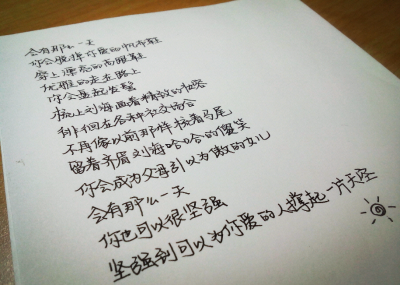 会有那么一天
你会脱掉你爱的帆布鞋
穿上漂亮的高跟鞋
优雅的走在路上
你会盘起发髻
梳上刘海画着精致的妆容
徘徊在各种社交场合
不再像以前那样扎着马尾
留着齐眉刘海哈哈的傻笑
你会成为父母引以为傲的女儿
会有那么一天
你也可以很坚强
坚强到可以为你爱的人撑起一片天空